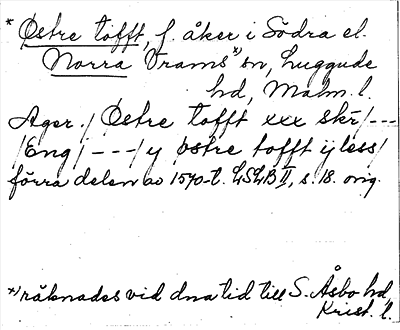 * Østre tofft, f. åker i Södra el.
Norra Vrams *) sn, Luggude
hd, Malm. l.
Ager./ Østre tofft xxx skr/---
/Eng/---/y østre tofft ij less/
förra delen av 1570-t. LSLB II, s. 18. orig.
*) räknades vid dna tid till S. Åsbo hd
Krist. l.